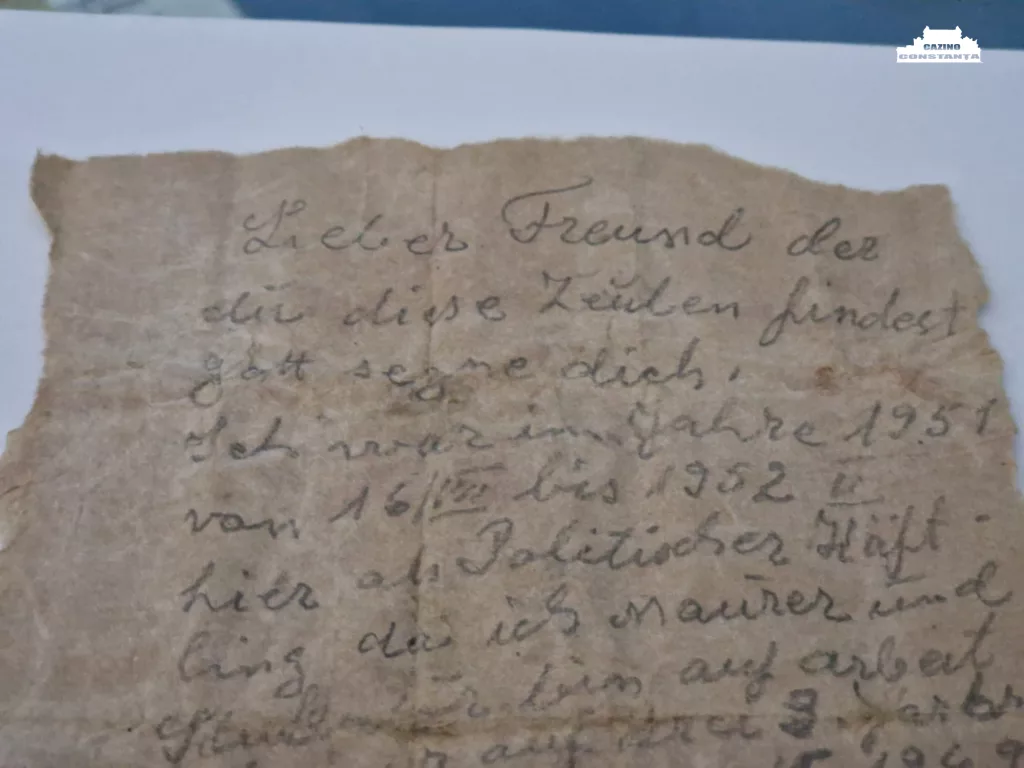 CAZINO
CONSTANȚA
Lieber Freund der
dū diese Zeulen findest
gott segne dich.
Ich war im Jahre 1951
von 16/VIII bis 1952 II
hier als Politischer Häft-
ling da ich Maūrer ūnd
bin auf arbeit
auf 3
1949